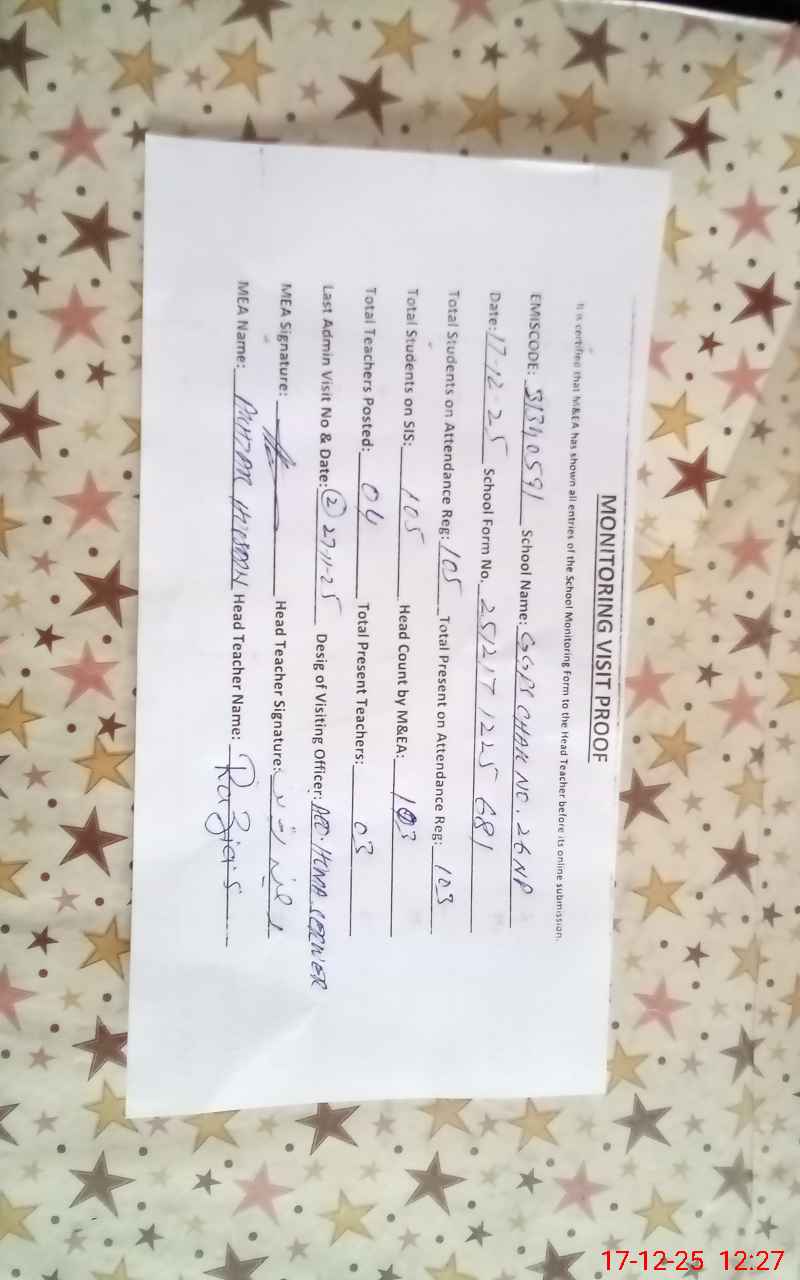 MONITORING VISIT PROOF
It is certified that M&EA has shown all entries of the School Monitoring Form to the Head Teacher before its online submission.
EMISCODE: 31340591 School Name: GGPS CHAK NO. 26 NP
Date: 17-12-25 School Form No. 251217 1225 681
Total Students on Attendance Reg: 105 Total Present on Attendance Reg: 103
Total Students on SIS: 105 Head Count by M&EA: 103
Total Teachers Posted: 04 Total Present Teachers: 03
Last Admin Visit No & Date: (2) 27-11-25 Desig of Visiting Officer: AEO. HUMA SERWER
MEA Signature: Head Teacher Signature:
MEA Name: Head Teacher Name:
17-12-25 12:27